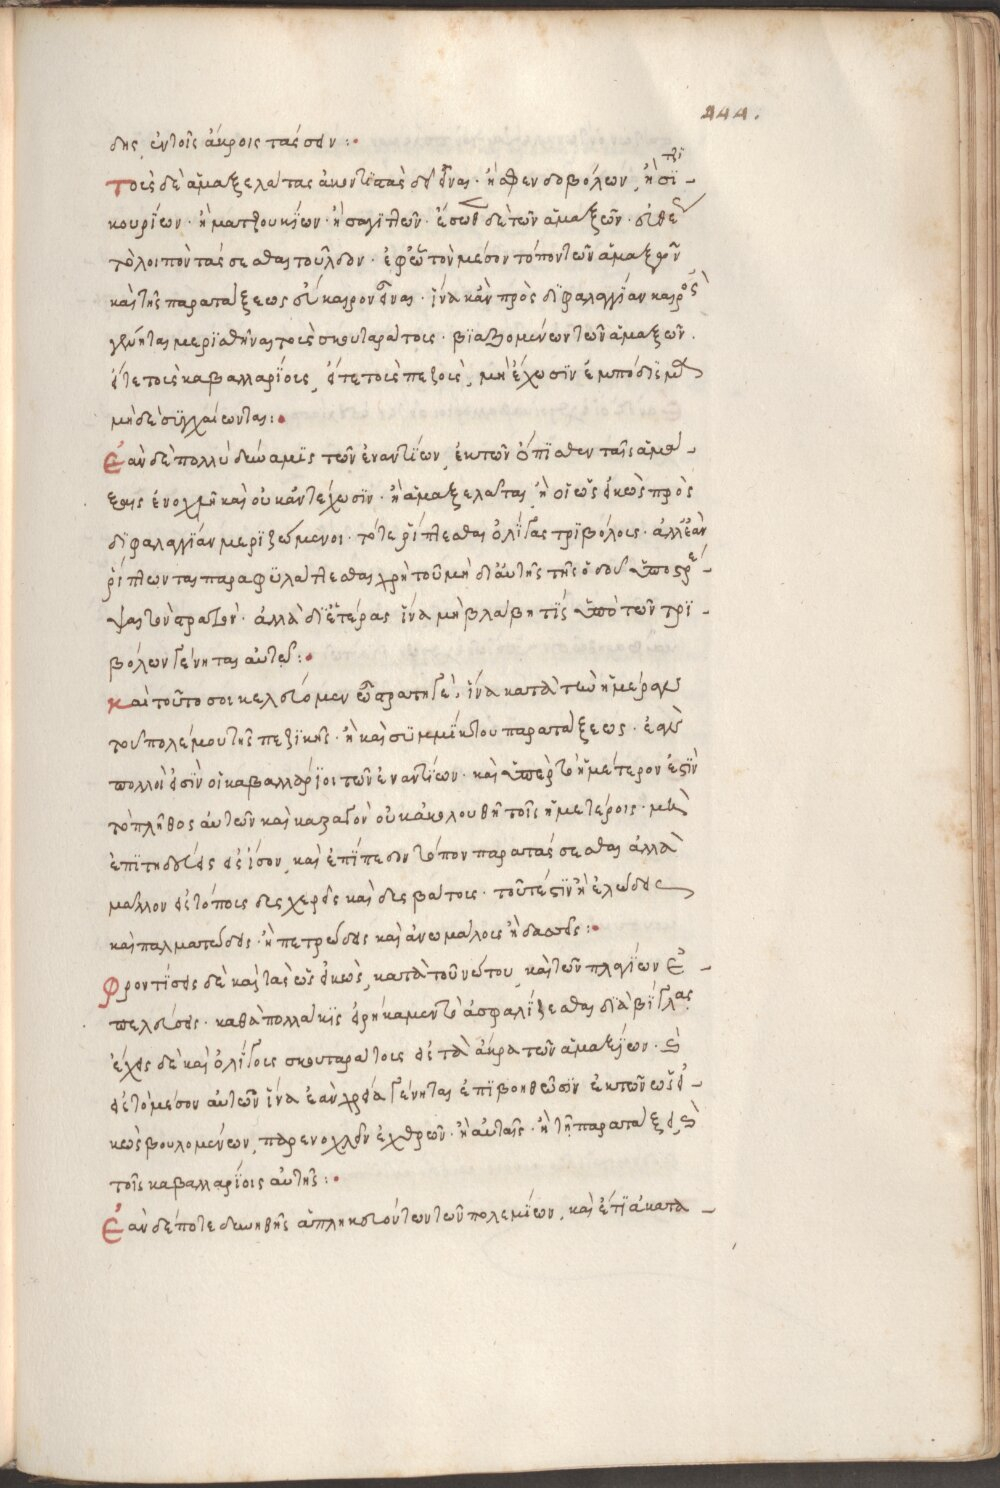 244.
δης, ἐν τοῖς ἄκροις τάσσειν :·
Τοὺς δὲ ἁμαξελάτας ἀκοντιστὰς δεῖ εἶναι · ἢ σφενδοβόλων, ἢ τζι
κουρίων · ἢ ματζουκίων · ἢ σαγιττῶν · ἔσωθεν δὲ τῶν ἁμαξῶν ·
τὸ λοιπὸν τάσσεσθαι τοῦλδον · ἐφ' ᾧ τὸν μέσον τόπον τῶν ἁμαξῶν
καὶ τῆς παρατάξεως εὔκαιρον εἶναι · ἵνα κἂν πρὸς διφαλαγγίαν καιρὸς
γένηται μερισθῆναι τοὺς σκουταράτους · βιαζομένων τῶν ἁμαξῶν ·
εἴτε τοὺς καβαλλαρίους, εἴτε τοὺς πεζοὺς, μὴ ἔχωσιν ἐμπόδισμα
μηδὲ συγχαίωνται :·
Ἐὰν δὲ πολλὺ δύναμις τῶν ἐναντίων, ἐκ τῶν ὄπισθεν ταῖς ἁμά
ξαις ἐνοχλῇ καὶ οὐκ ἀντέχωσιν · ἢ ἁμαξελάται, ἢ οἱ ὡς εἰκὸς πρὸς
διφαλαγγίαν μεριζόμενοι · τότε ῥίπτεσθαι ὀλίγας τριβόλους · ἀλλ' ἐὰν
ῥίπτωνται παραφυλάττεσθαι χρὴ τοῦ μὴ δι' αὐτῆς τῆς ὁδοῦ ὑποστρέ
ψαι τὸν στρατὸν · ἀλλὰ δι' ἑτέρας ἵνα μὴ βλάβη τίς ὑπὸ τῶν τρι
βόλων γένηται αὐτοῦ :·
Καὶ τοῦτό σοι κελεύομεν ὦ στρατηγὲ, ἵνα κατὰ τὴν ἡμέραν
τοῦ πολέμου τῆς πεζικῆς · ἢ καὶ συμμίκτου παρατάξεως · ἐὰν
πολλοὶ εἰσὶν οἱ καβαλλάριοι τῶν ἐναντίων · καὶ ὑπὲρ τὸ ἡμέτερον ἐστὶν
τὸ πλῆθος αὐτῶν καὶ καζαδὸν οὐκ ἀκολουθῇ τοῖς ἡμετέροις · μὴ
ἐπιτηδεύεις εἰς ἴσον, καὶ ἐπίπεδον τόπον παρατάσσεσθαι ἀλλὰ
μᾶλλον εἰς τόπους δυσχερεῖς καὶ δυσβάτους · τοῦτ' ἐστὶν ἢ ἑλώδεις
καὶ παλματώδεις · ἢ πετρώδεις καὶ ἀνωμάλους ἢ δασεῖς :·
Φροντίσεις δὲ καὶ τὰς ὡς εἰκὸς, κατὰ τοῦ νώτου, καὶ τῶν πλαγίων ἐ
πελεύσεις · καθὰ πολλάκις εἰρήκαμεν τὸ ἀσφαλίζεσθαι διὰ βίγλας
ἔχεις δὲ καὶ ὀλίγους σκουταράτους εἰς τὰ ἄκρα τῶν ἁμαξίων · καὶ
εἰς τὸ μέσον αὐτῶν ἵνα ἐὰν χρεία γένηται ἐπιβοηθῶσιν ἐκ τῶν ὡς εἰ
κὸς βουλομένων, παρενοχλεῖν ἐχθρῶν · ἢ αὐταῖς · ἢ τῇ παρατάξει, καὶ
τοῖς καβαλλαρίοις αὐτῆς :·
Ἐὰν δέ ποτε δυνηθῇς ἀπληκευόντων τῶν πολεμίων, καὶ ἔτι ἀκατα